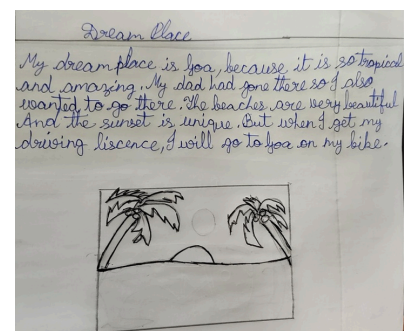 Dream Place
My dream place is Goa, because it is so tropical
and amazing. My dad had gone there so I also
wanted to go there. The beaches are very beautiful
And the sunset is unique. But when I get my
driving liscence, I will go to Goa on my bike.